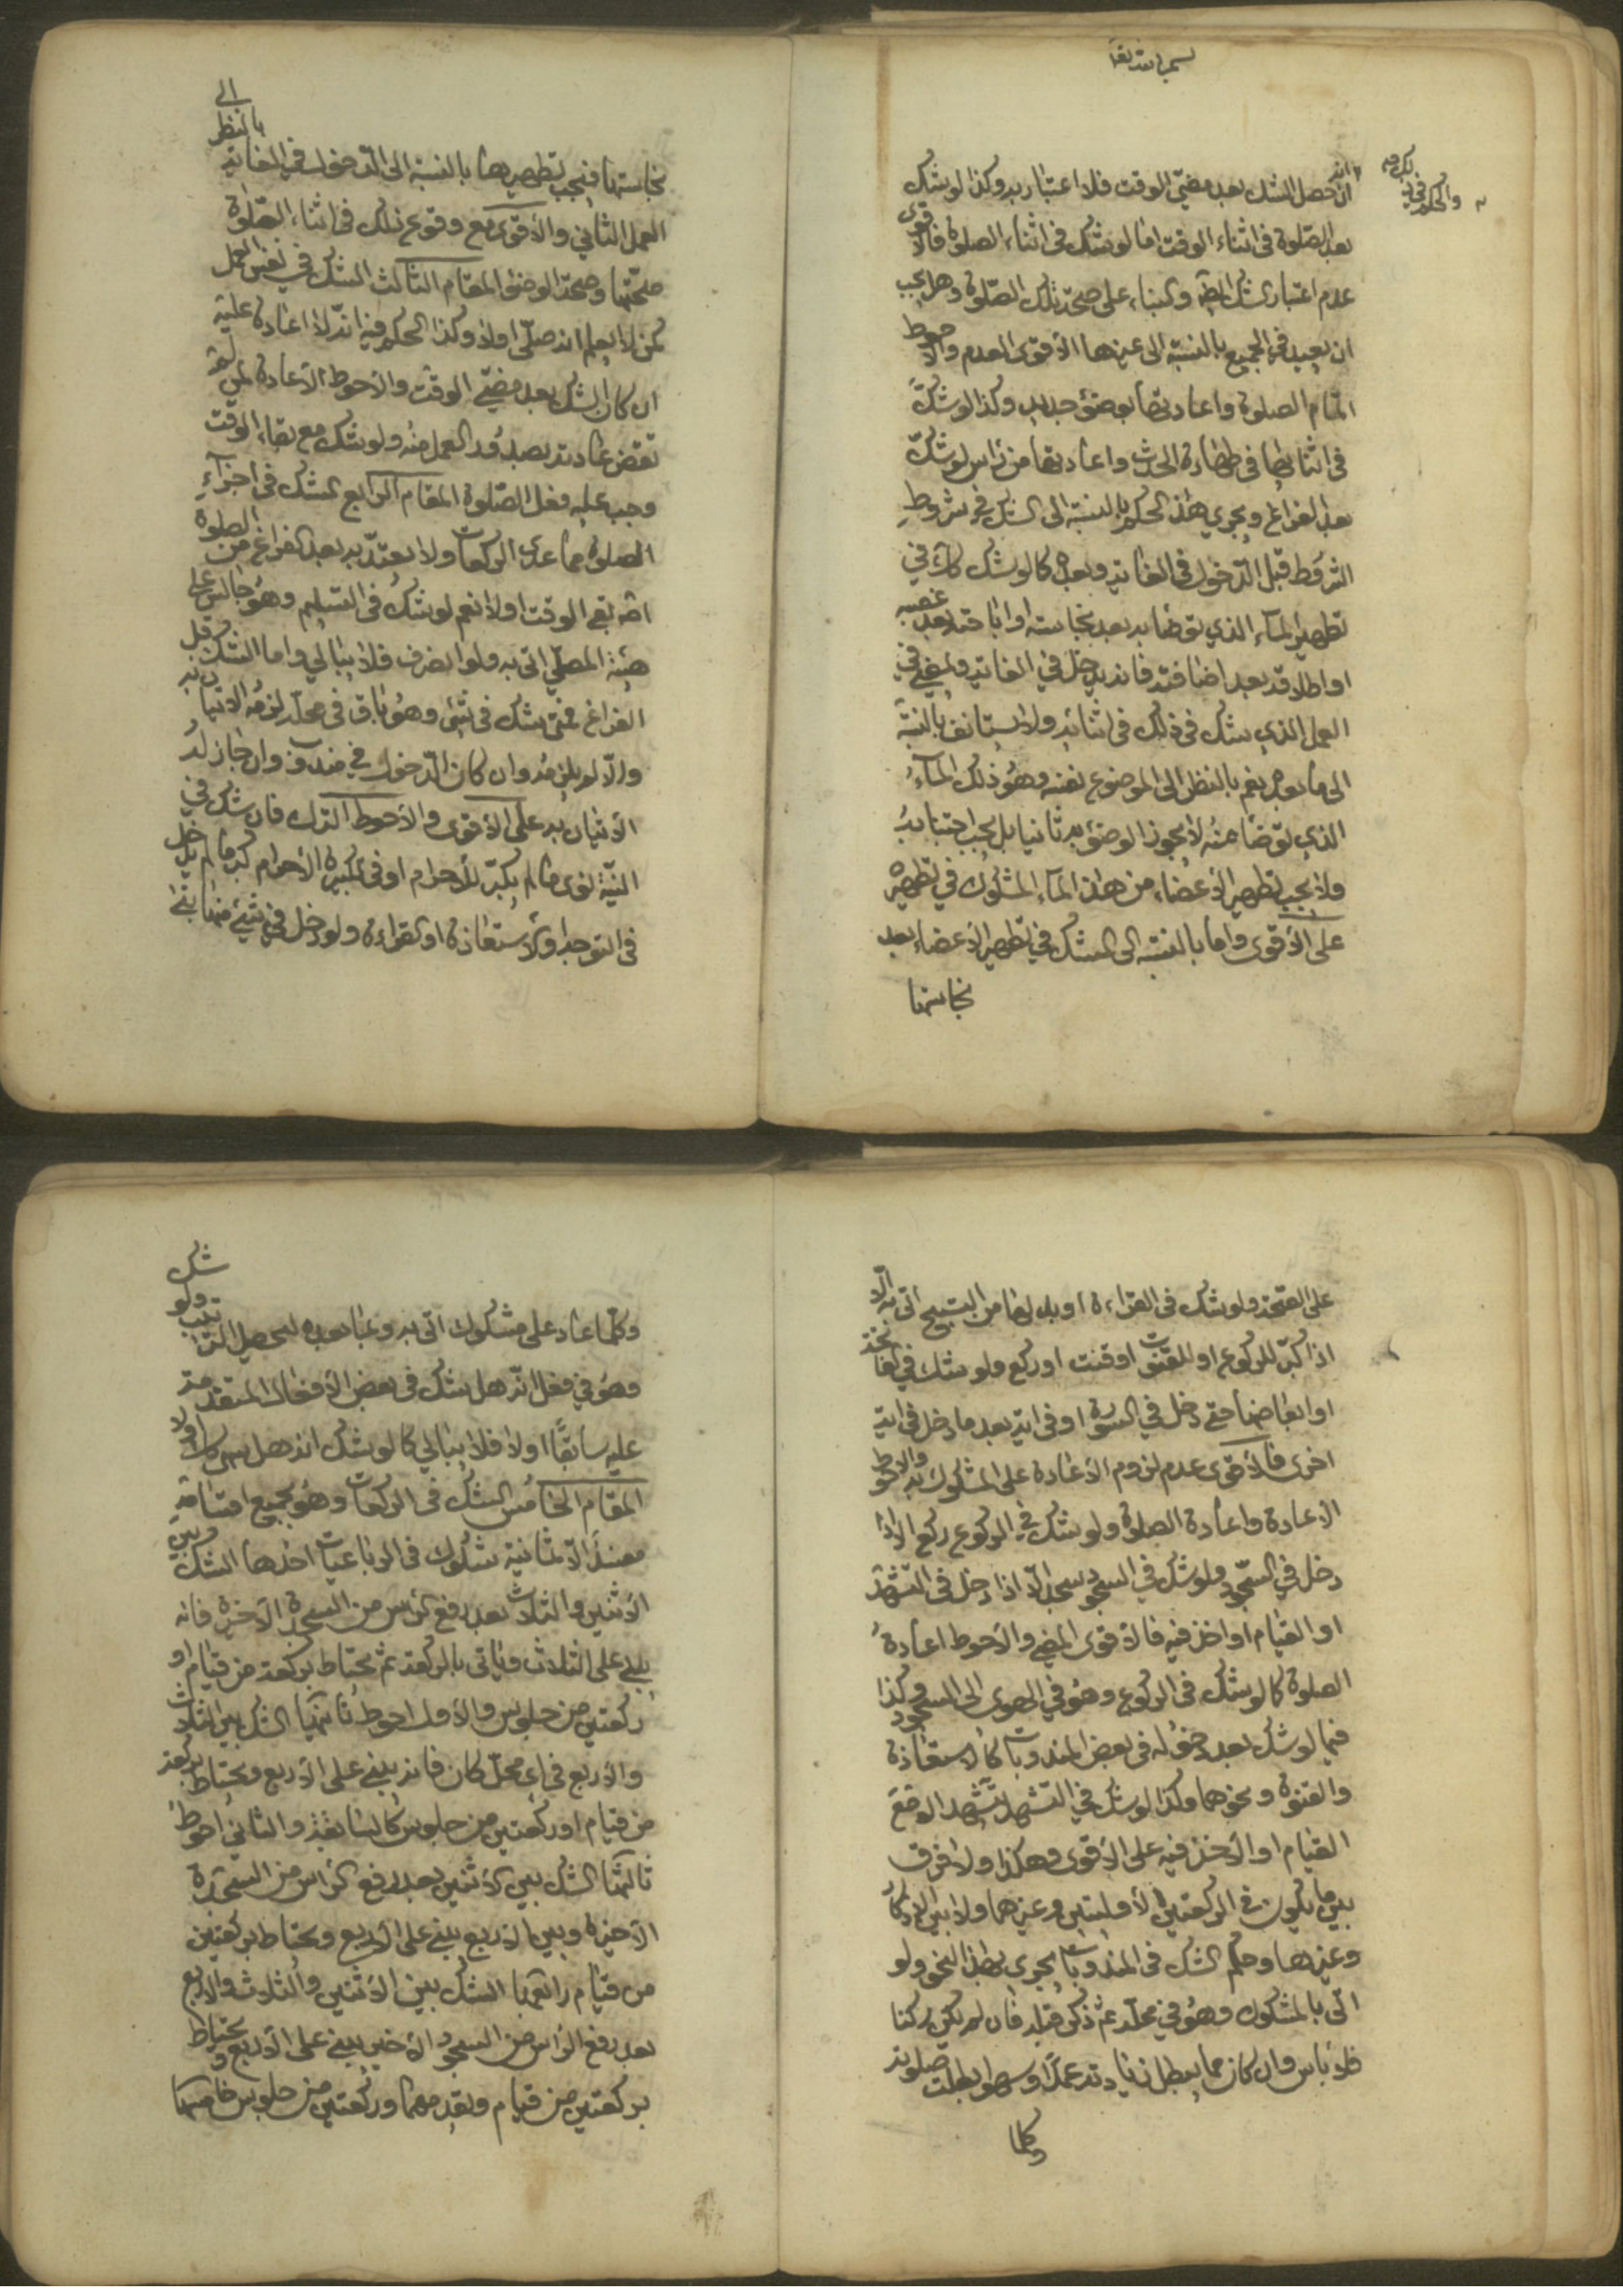 بسم الله تعا
والحكم فيه
ان حصل الشك بعد مضي الوقت فلا اعتبار به وكذا لو شك
بعد الصلوة في اثناء الوقت اما لو شك في اثناء الصلوة فالاقوى
عدم اعتبار الشك ايضا والبناء على صحة تلك الصلوة وهل يجب
ان يعيد في الجميع بالنسبة الى غيرها الأقوى العدم والأحوط
اتمام الصلوة واعادتها بوضوء جديد وكذا لو شك
في اثنائها في طهارة الحدث واعادتها من راس لو شك
بعد الفراغ ويجري هذا الحكم بالنسبة الى الشك في شروط
الشروط قبل الدخول في الغاية وبعده كما لو شك في
تطهير الماء الذي توضا به بعد نجاسته او اباحته بعد غصبه
او اطلاقه بعد اضافته فانه يدخل في الغاية ويمضي في
العمل الذي شك في ذلك في اثنائه ولا يستانف بالنسبة
الى ما بعده نعم بالنظر الى الموضوع نفسه وهو ذلك الماء
الذي توضا منه لا يجوز الوضوء به ثانيا بل يجب اجتنابه
ولا يجب تطهير الأعضاء من هذا الماء المشكوك في تطهيره
على الأقوى واما بالنسبة الى الشك في تطهير الأعضاء بعد
نجاستها
نجاستها فيجب تطهيرها بالنسبة الى الدخول في الغاية بالنظر الى
العمل الثاني والأقوى مع وقوع ذلك في اثناء الصلوة
صحتها وصحة الوضوء المقام الثالث الشك في نفس العمل
كمن لا يعلم انه صلى اولا وكذا الحكم فيه انه لا اعادة عليه
ان كان الشك بعد مضي الوقت والأحوط الأعادة لمن لم
تقض عادته بصدور العمل منه ولو شك مع بقاء الوقت
وجب عليه فعل الصلوة المقام الرابع الشك في اجزاء
الصلوة مما عدى الركعات ولا يعتد به بعد الفراغ من الصلوة
بقي الوقت اولا نعم لو شك في التسليم وهو جالس على
هيئة المصلي اتى به ولو انصرف فلا يبالي واما الشك قبل
الفراغ فمتى شك في شئ وهو باق في محله لزمه الاتيان به
والا لم يلزمه وان كان الدخول في مندوب وان جاز له
الأتيان به على الأقوى والأحوط الترك فان شك في
النية نوى ما لم يكبر للأحرام او في تكبيرة الأحرام كبر ما لم يدخل
في التوجه او الأستعاذة او القراءة ولو دخل في شئ منها بنى
على الصحة ولو شك في القراءة او بدلها من التسبيح اتى به الا
اذا كبر للركوع او القنوت او قنت او ركع ولو شك في الفاتحة
او ابعاضها حتى دخل في السورة او في اية بعد ما دخل في اية
اخرى فالأقوى عدم لزوم الأعادة على المشكوك به والأحوط
الأعادة واعادة الصلوة ولو شك في الركوع ركع الا اذا
دخل في السجود ولو شك في السجود سجد الا اذا دخل في التشهد
او القيام او اخذ فيه فالأقوى المضي والأحوط اعادة
الصلوة كما لو شك في الركوع وهو في الهوى الى السجود وكذا
فيما لو شك بعد دخوله في بعض المندوبات كالأستعاذة
والقنوت ونحوهما وكذا لو شك في التشهد تشهد الا مع
القيام او الأخذ فيه على الأقوى وهكذا ولا فرق
بين ما يكون في الركعتين الأوليتين وغيرهما ولا بين الاركان
وغيرها وحكم الشك في المندوبات يجري بهذا النحو ولو
اتى بالمشكوك وهو في محله ثم ذكر فعله فان لم يكن ركنا
فلا باس وان كان مما يبطل زيادته عمدا وسهوا بطلت صلوته
وكلما
وكلما عاد على مشكوك اتى به وبما بعده ليحصل الترتيب ولو شك
وهو في فعل انه هل شك في بعض الأفعال المتقدمة
عليه سابقا اولا فلا يبالي كما لو شك انه هل سهى كذلك اولا
المقام الخامس الشك في الركعات وهو بجميع اقسامه
مفسد الا ثمانية شكوك في الرباعيات احدها الشك بين
الأثنين والثلاث بعد رفع الراس من السجدة الأخيرة فانه
يبني على الثلاث وياتي بالركعة ثم يحتاط بركعة من قيام او
ركعتين من جلوس والأول احوط ثانيها الشك بين الثلاث
والأربع في اي محل كان فانه يبني على الأربع ويحتاط بركعة
من قيام او ركعتين من جلوس كالسابقة والثاني احوط
ثالثها الشك بين الأثنين بعد رفع الراس من السجدة
الأخيرة وبين الأربع يبني على الأربع ويحتاط بركعتين
من قيام رابعها الشك بين الأثنين والثلاث والأربع
بعد رفع الراس من السجود الأخير يبني على الأربع ويحتاط
بركعتين من قيام ويقدمهما وركعتين من جلوس خامسها